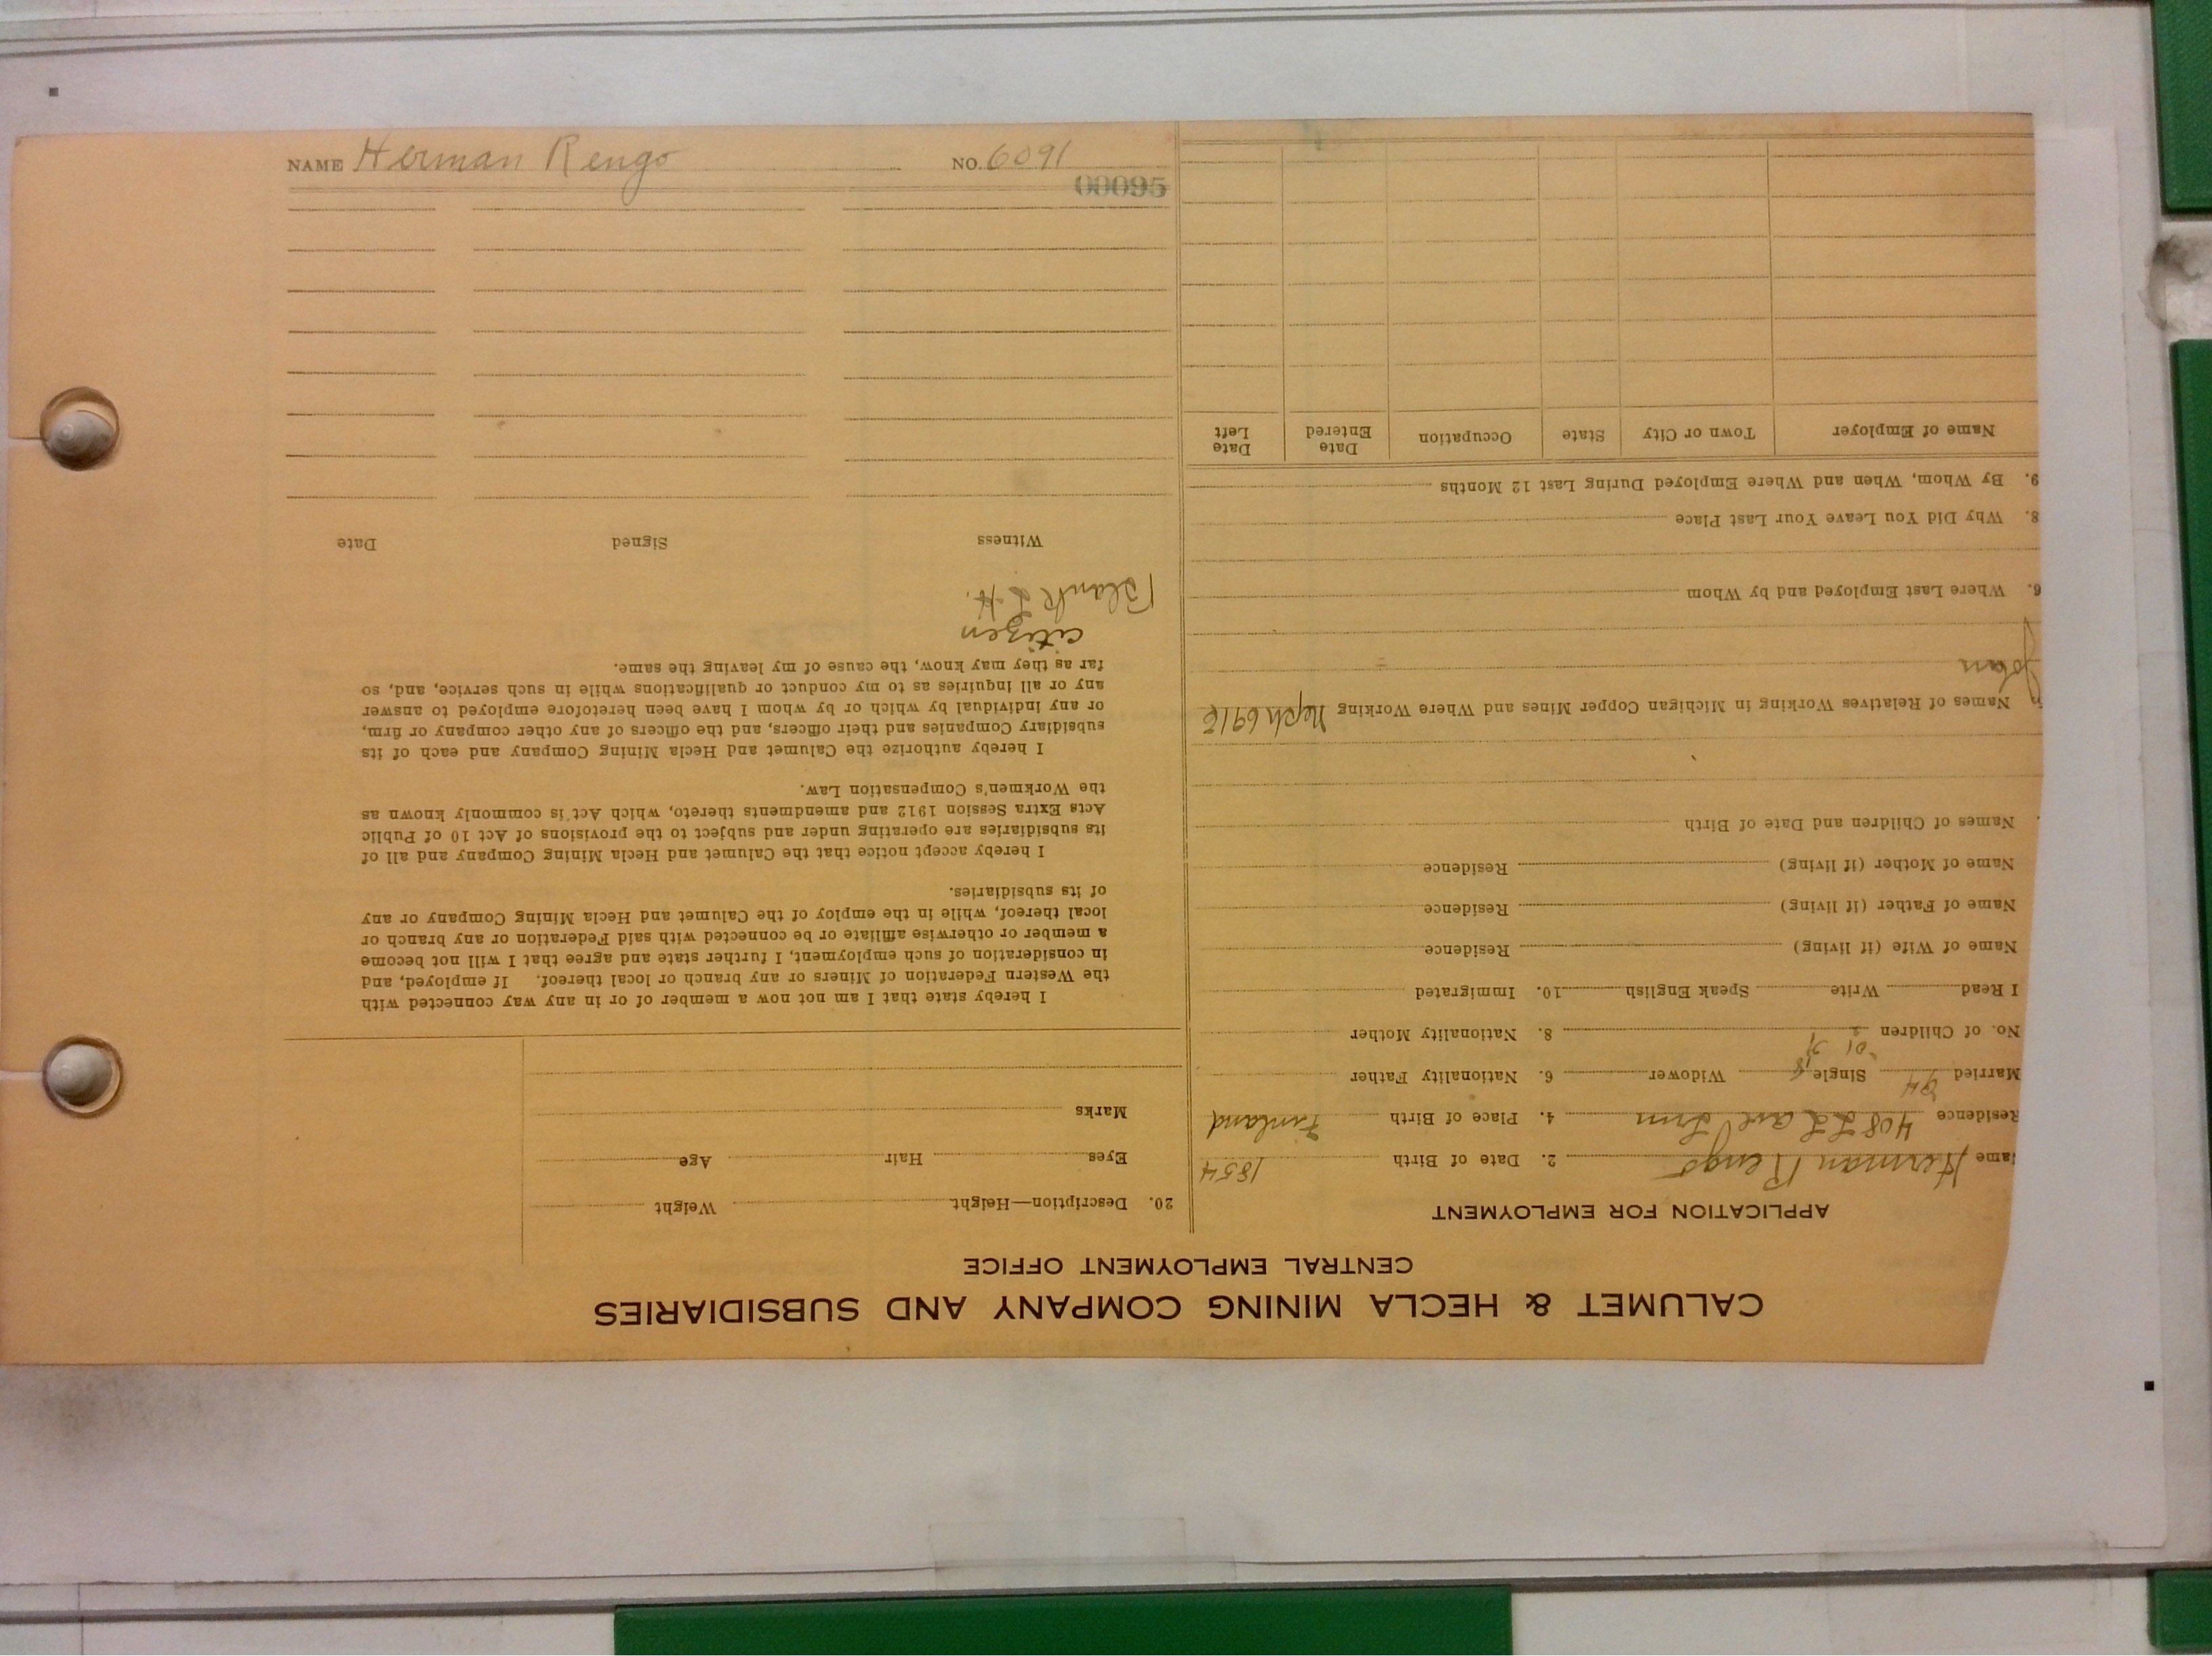 NAME Herman Rengo NO. 6091
00095
CALUMET & HECLA MINING COMPANY AND SUBSIDIARIES
CENTRAL EMPLOYMENT OFFICE
APPLICATION FOR EMPLOYMENT
Name Herman Rengo 2. Date of Birth 1854
Residence 408 L L ave 4. Place of Birth Finland
Married Single Widower 6. Nationality Father
No. of Children 8. Nationality Mother
I Read Write Speak English 10. Immigrated
Name of Wife (if living) Residence
Name of Father (if living) Residence
Name of Mother (if living) Residence
Names of Children and Date of Birth
Names of Relatives Working in Michigan Copper Mines and Where Working Neph 6916
John
6. Where Last Employed and by Whom
8. Why Did You Leave Your Last Place
9. By Whom, When and Where Employed During Last 12 Months
Name of Employer Town or City State Occupation Date Entered Date Left
20. Description—Height Weight
Eyes Hair Age
Marks
I hereby state that I am not now a member of or in any way connected with
the Western Federation of Miners or any branch or local thereof. If employed, and
in consideration of such employment, I further state and agree that I will not become
a member or otherwise affiliate or be connected with said Federation or any branch or
local thereof, while in the employ of the Calumet and Hecla Mining Company or any
of its subsidiaries.
I hereby accept notice that the Calumet and Hecla Mining Company and all of
its subsidiaries are operating under and subject to the provisions of Act 10 of Public
Acts Extra Session 1912 and amendments thereto, which Act is commonly known as
the Workmen's Compensation Law.
I hereby authorize the Calumet and Hecla Mining Company and each of its
subsidiary Companies and their officers, and the officers of any other company or firm,
or any individual by which or by whom I have been heretofore employed to answer
any or all inquiries as to my conduct or qualifications while in such service, and, so
far as they may know, the cause of my leaving the same.
citizen
Blank L.H.
Witness Signed Date